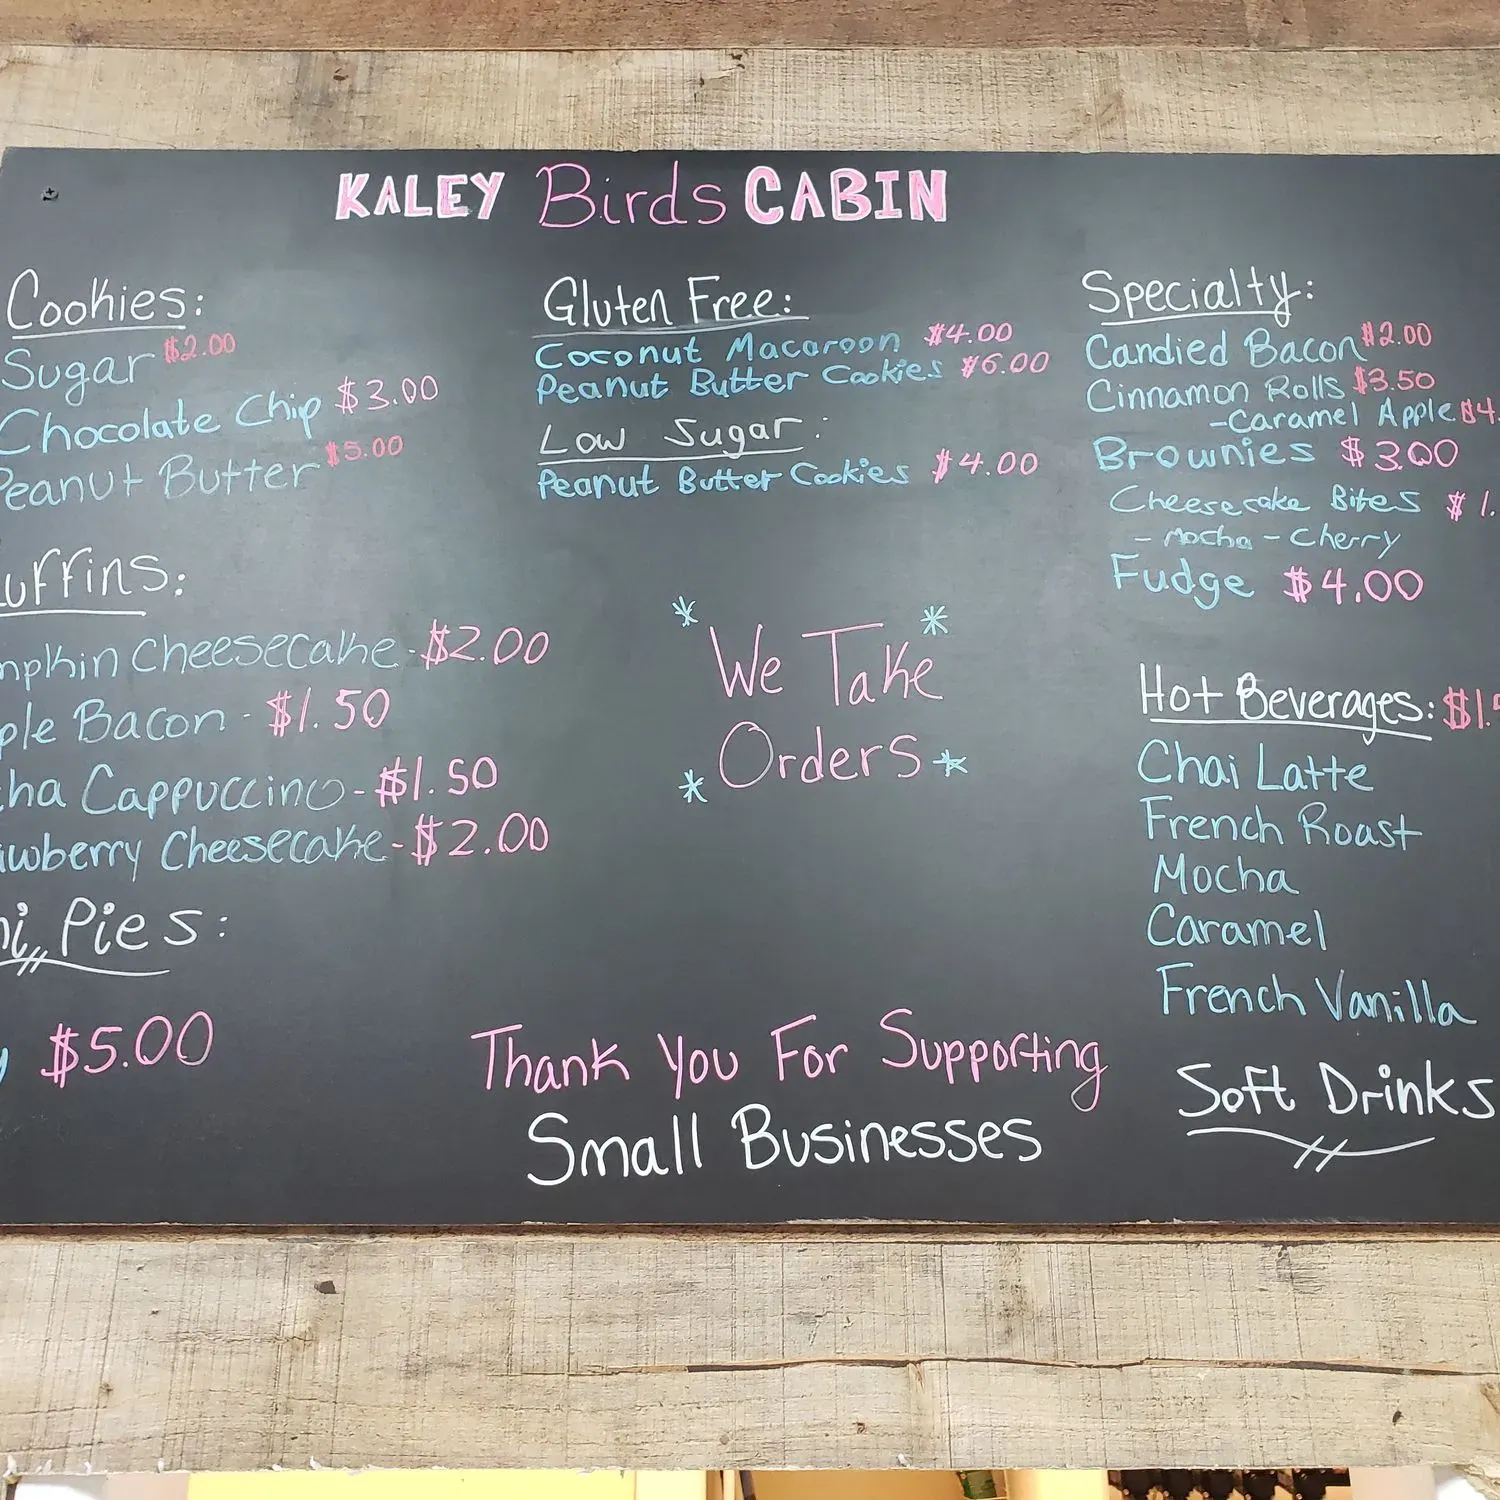 KALEY Birds CABIN
Cookies:
Sugar $2.00
Chocolate Chip $3.00
Peanut Butter $5.00
uffins:
mpkin Cheesecake - $2.00
ple Bacon - $1.50
cha Cappuccino - $1.50
awberry Cheesecake - $2.00
ni Pies:
y $5.00
Gluten Free:
Coconut Macaroon $4.00
Peanut Butter Cookies $6.00
Low Sugar:
Peanut Butter Cookies $4.00
* We Take *
* Orders *
Thank You For Supporting
Small Businesses
Specialty:
Candied Bacon $2.00
Cinnamon Rolls $3.50
- Caramel Apple $4.
Brownies $3.00
Cheesecake Bites $1.
- Mocha - Cherry
Fudge $4.00
Hot Beverages: $1.5
Chai Latte
French Roast
Mocha
Caramel
French Vanilla
Soft Drinks